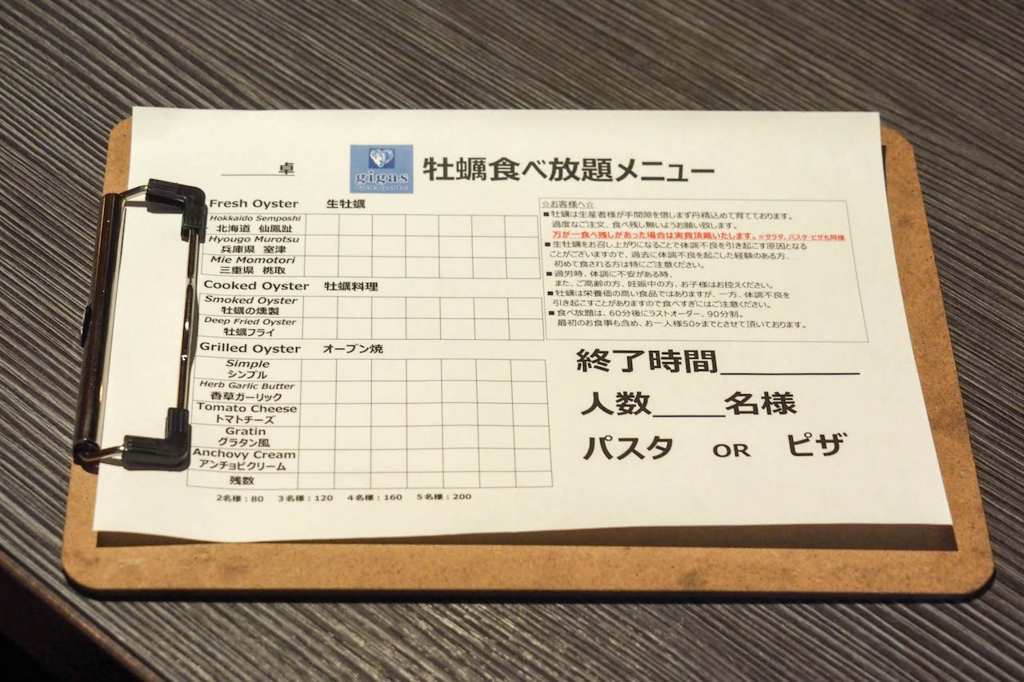 ______卓
gigas
牡蠣食べ放題メニュー
Fresh Oyster 生牡蠣
Hokkaido Semposhi
北海道 仙鳳趾
Hyougo Murotsu
兵庫県 室津
Mie Momotori
三重県 桃取
Cooked Oyster 牡蠣料理
Smoked Oyster
牡蠣の燻製
Deep Fried Oyster
牡蠣フライ
Grilled Oyster オーブン焼
Simple
シンプル
Herb Garlic Butter
香草ガーリック
Tomato Cheese
トマトチーズ
Gratin
グラタン風
Anchovy Cream
アンチョビクリーム
残数
2名様：80 3名様：120 4名様：160 5名様：200
☆お客様へ☆
■牡蠣は生産者様が手間隙を惜しまず丹精込めて育てております。
過度なご注文、食べ残し無いようお願い致します。
万が一食べ残しがあった場合は実費頂戴いたします。※サラダ、パスタ・ピザも同様
■生牡蠣をお召し上がりになることで体調不良を引き起こす原因となる
ことがございますので、過去に体調不良を起こした経験のある方、
初めて食される方は特にご注意ください。
■過労時、体調に不安がある時、
また、ご高齢の方、妊娠中の方、お子様はお控えください。
■牡蠣は栄養価の高い食品ではありますが、一方、体調不良を
引き起こすことがありますので食べすぎにはご注意ください。
■食べ放題は、60分後にラストオーダー、90分制。
最初のお食事も含め、お一人様50ヶまでとさせて頂いております。
終了時間__________
人数____名様
パスタ OR ピザ